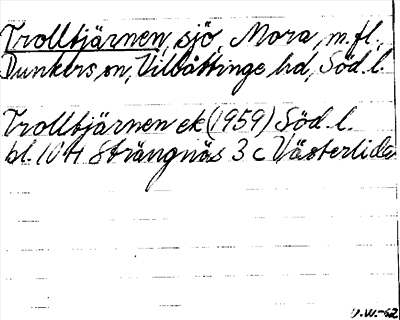 Trolltjärnen, sjö, Mora, m.fl.,
Dunkers sn, Villåttinge hd, Söd. l.
Trolltjärnen ek (1959) Söd. l.
bl. 10 H Strängnäs 3 c Västerlida
O.W.-62